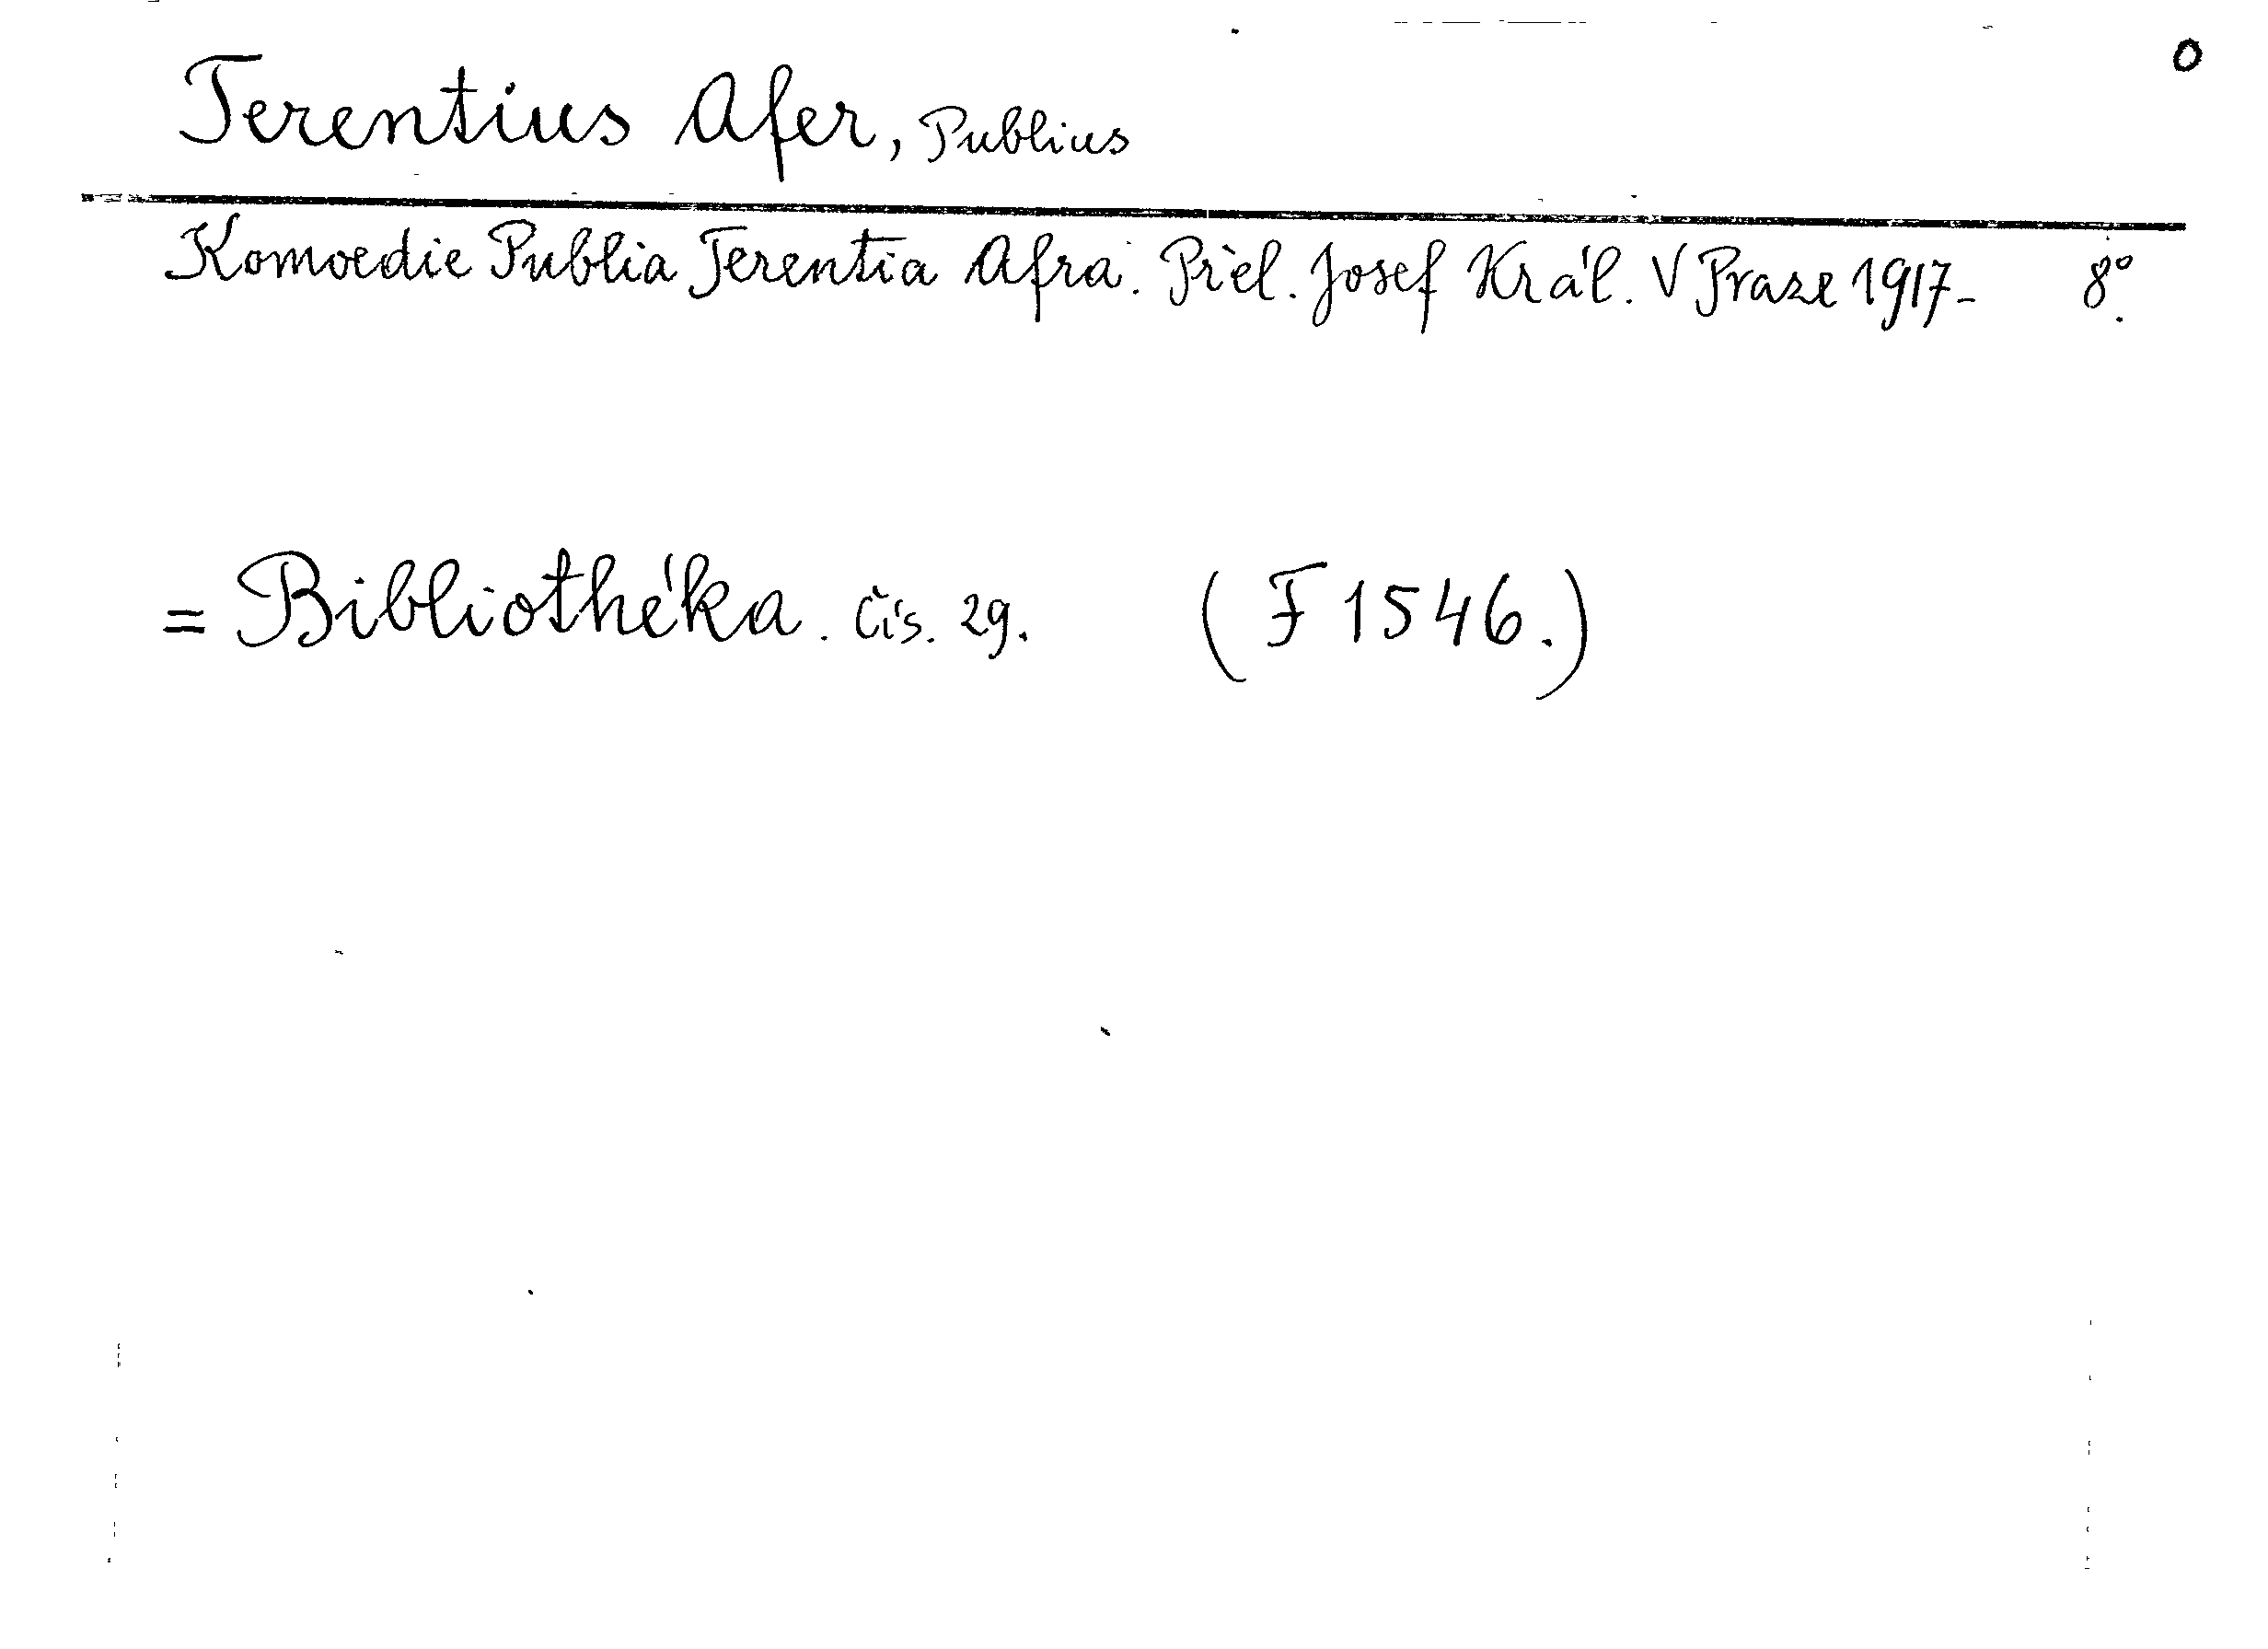 o
Terentius Afer, Publius
Komoedie Publia Terentia Afra. Přel. Josef Král. V Praze 1917- 8°.
= Bibliothéka. čís. 29. (F 1546.)